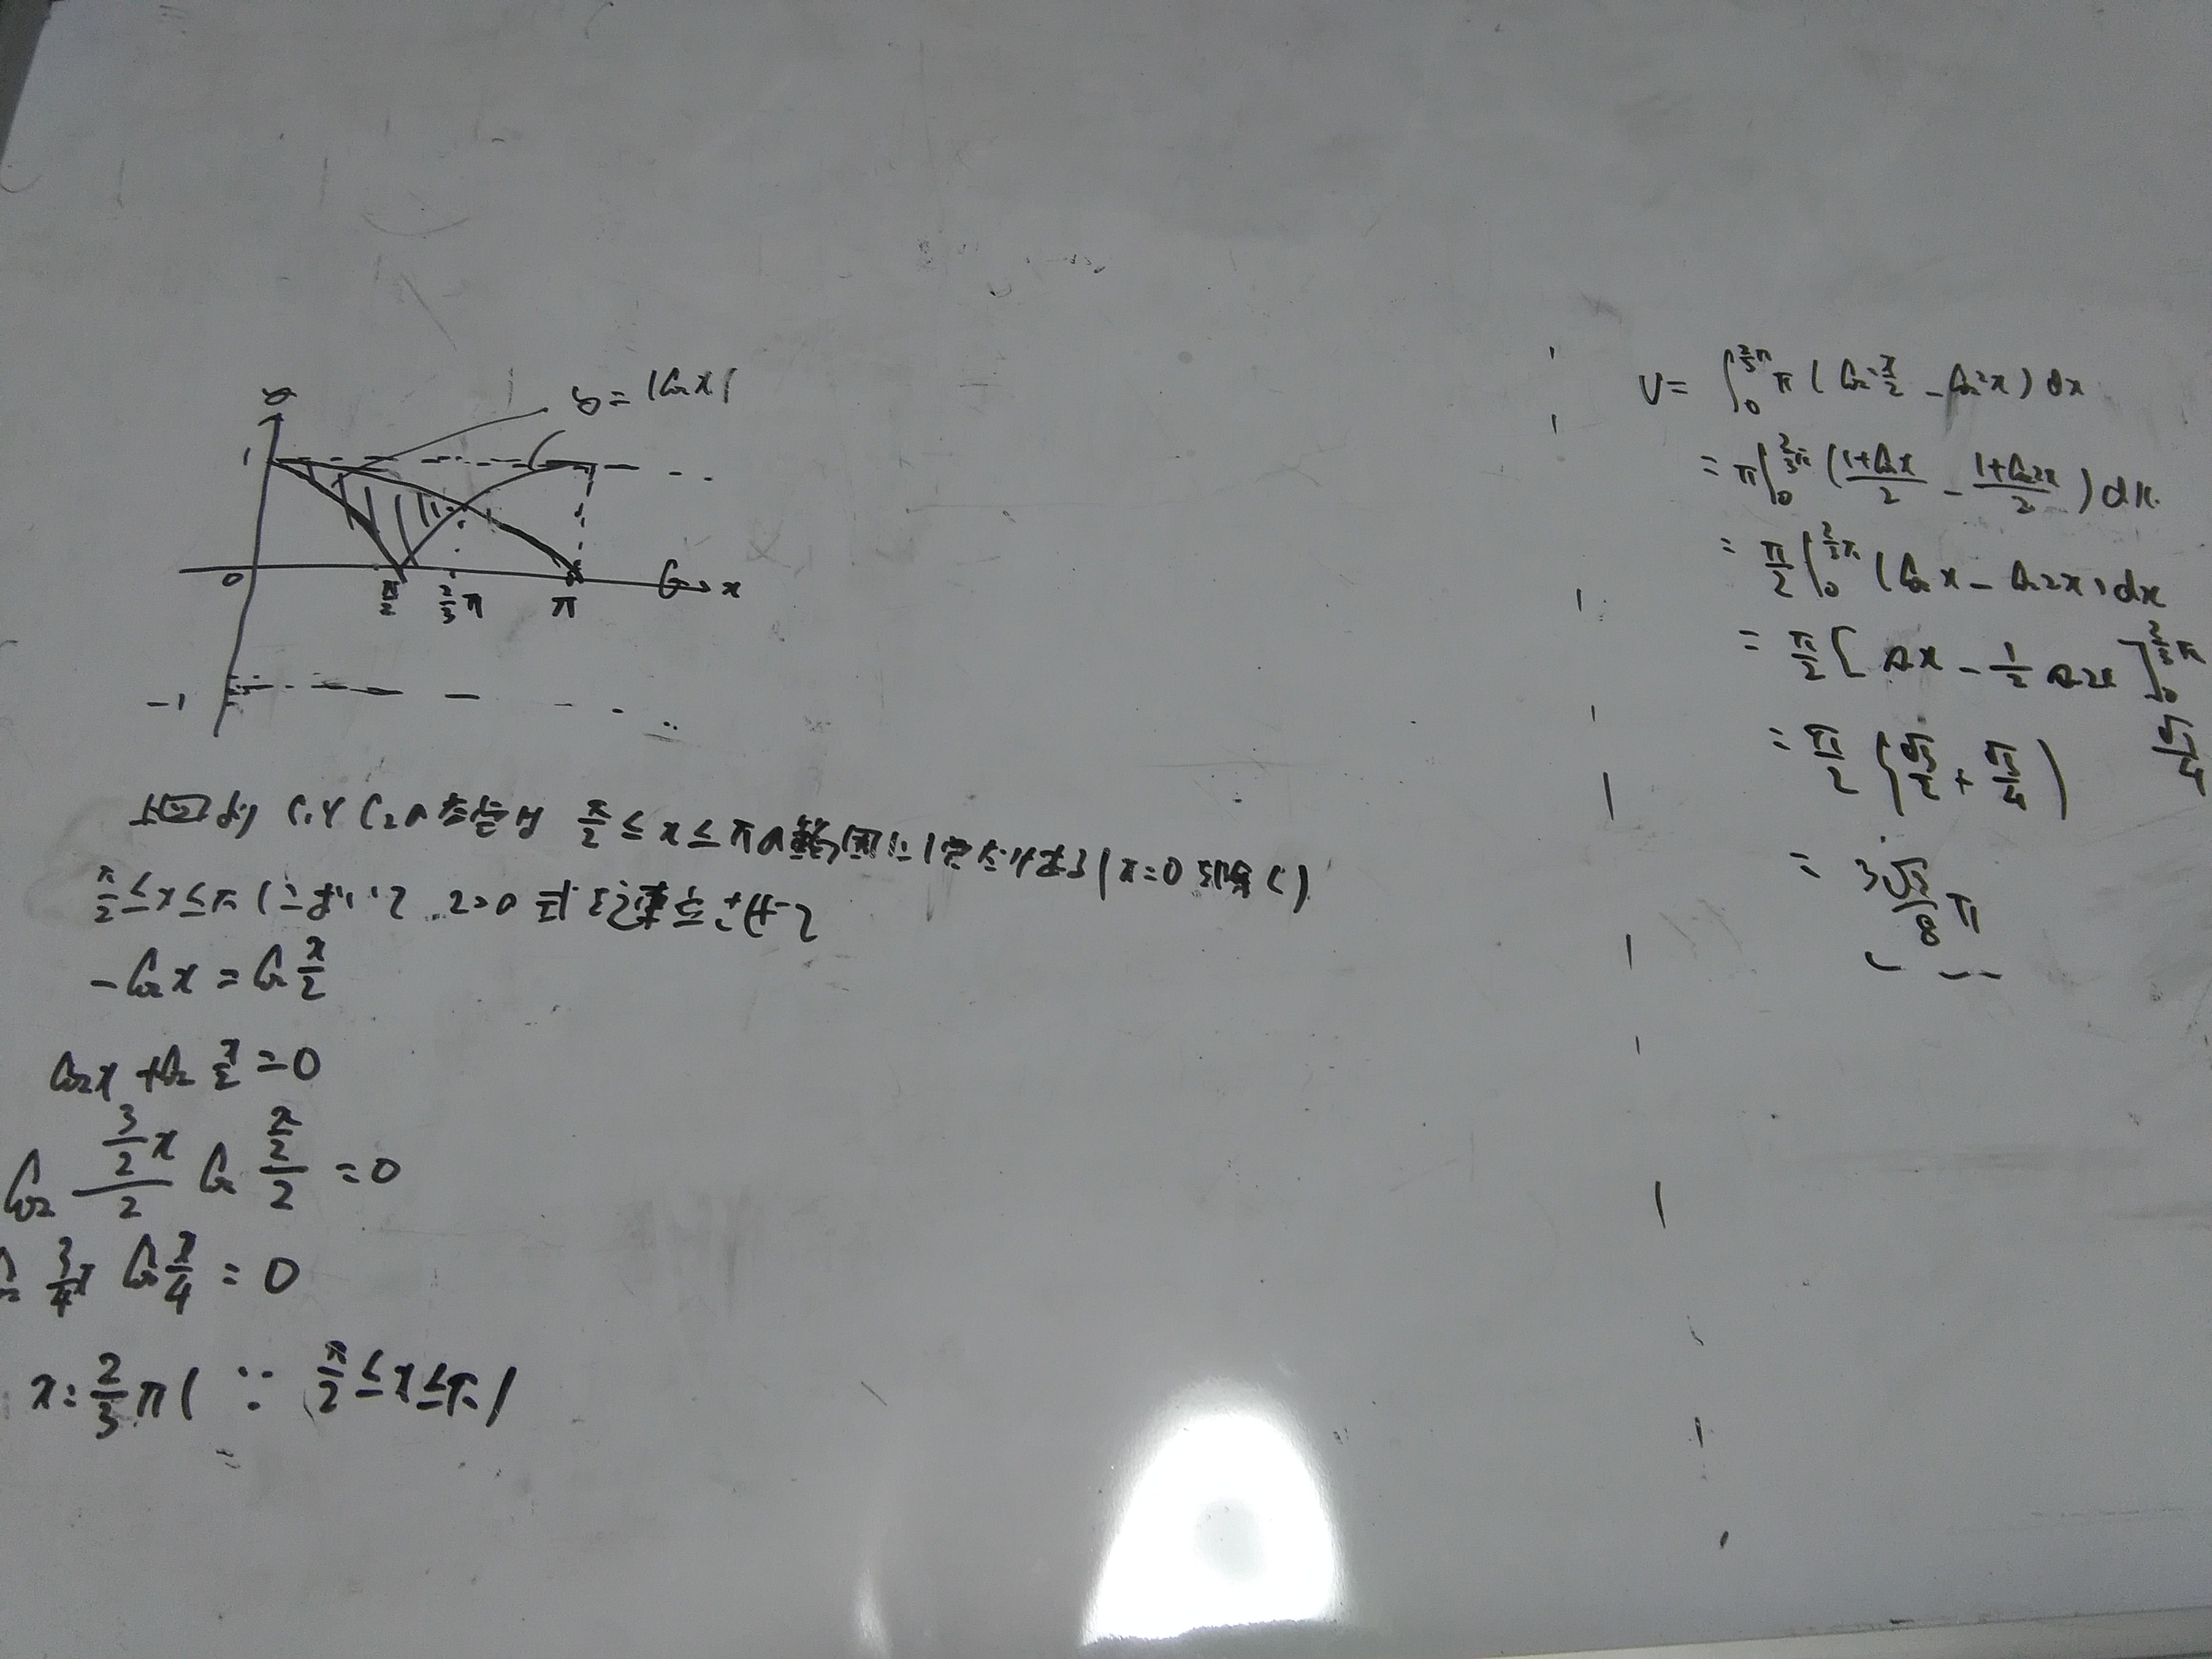 y
y = |cos x|
1
0
π/2
2/3 π
π
x
-1
上図より C₁とC₂の交点は π/2 ≤ x ≤ π の範囲に1つ (x=0を除く)
π/2 ≤ x ≤ π において 2つの式を連立させて
-cos x = cos x/2
cos x + cos x/2 = 0
cos (3/2 x)/2 cos (x/2)/2 = 0
cos 3/4 x cos x/4 = 0
x = 2/3 π (∵ π/2 ≤ x ≤ π)
V = ∫₀^{2/3 π} π (cos² x/2 - cos² x) dx
= π ∫₀^{2/3 π} ((1+cos x)/2 - (1+cos 2x)/2) dx
= π/2 ∫₀^{2/3 π} (cos x - cos 2x) dx
= π/2 [sin x - 1/2 sin 2x]₀^{2/3 π}
= π/2 (√3/2 + √3/4)
= 3√3/8 π